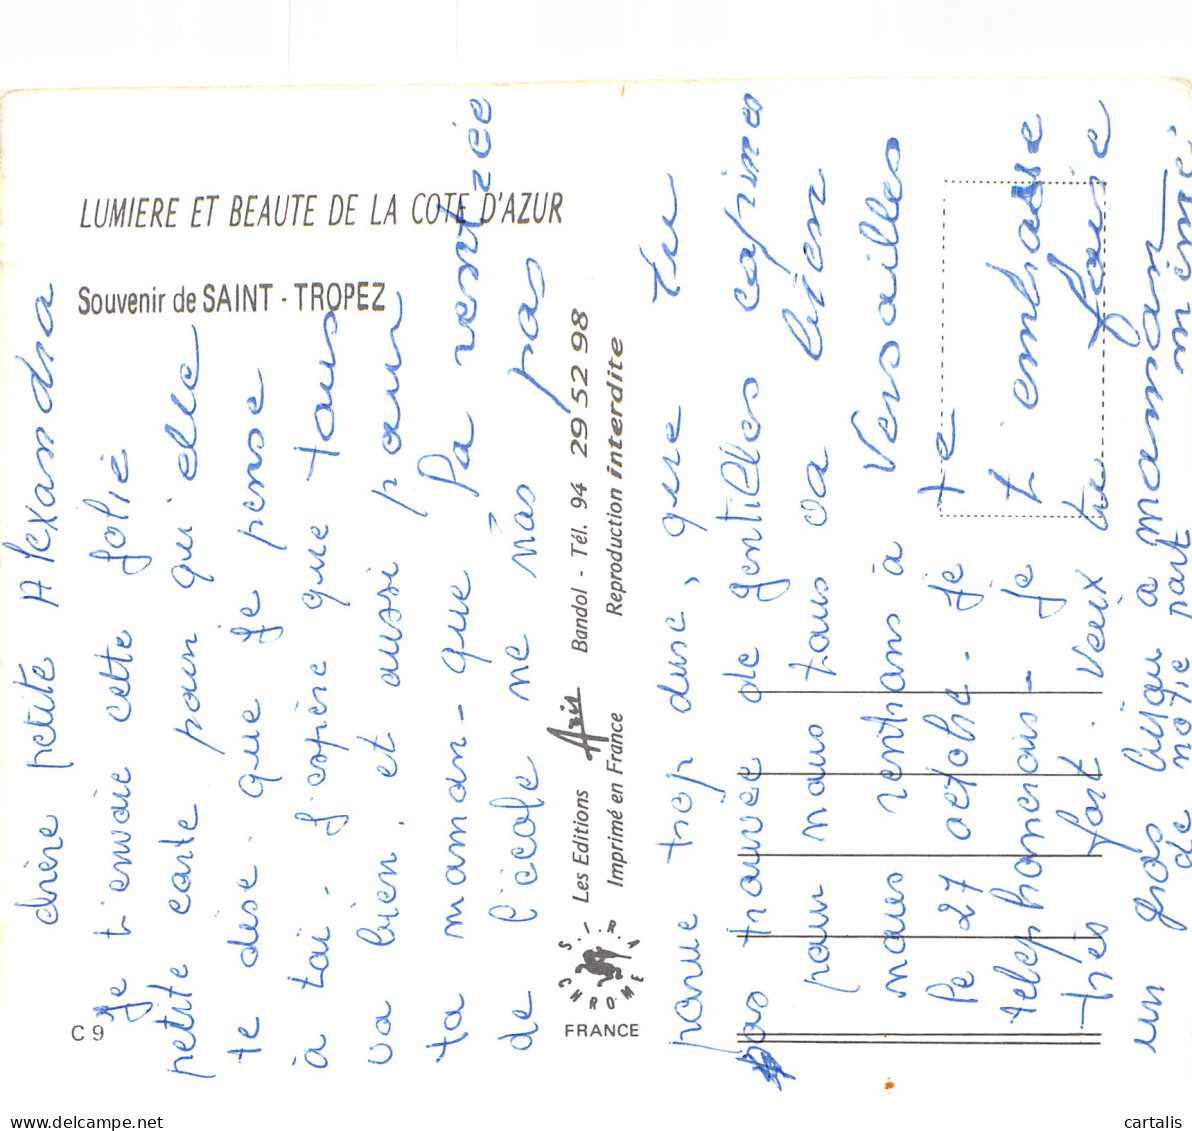 LUMIERE ET BEAUTE DE LA COTE D'AZUR
Souvenir de SAINT - TROPEZ
C 9
S.I.R.A CHROME
FRANCE
Les Editions Aris Bandol - Tél. 94 29 52 98
Imprimé en France Reproduction interdite
chère petite Alexandra
Je t'envoie cette jolie
petite carte pour qu'elle
te dise. que je pense
à toi. J'espère que tous
va bien. et aussi pour
ta maman - que la rentrée
de l'école ne nas pas
parue trop dure, que tu
pas trouvée de gentilles copines
pour nous tous va bien
nous rentrons à Versailles
le 27 octobre - je te
telephonerais - je t'embrasse
très fort. veux tu faire
un gros bijou a maman
de notre part mimi
cartalis